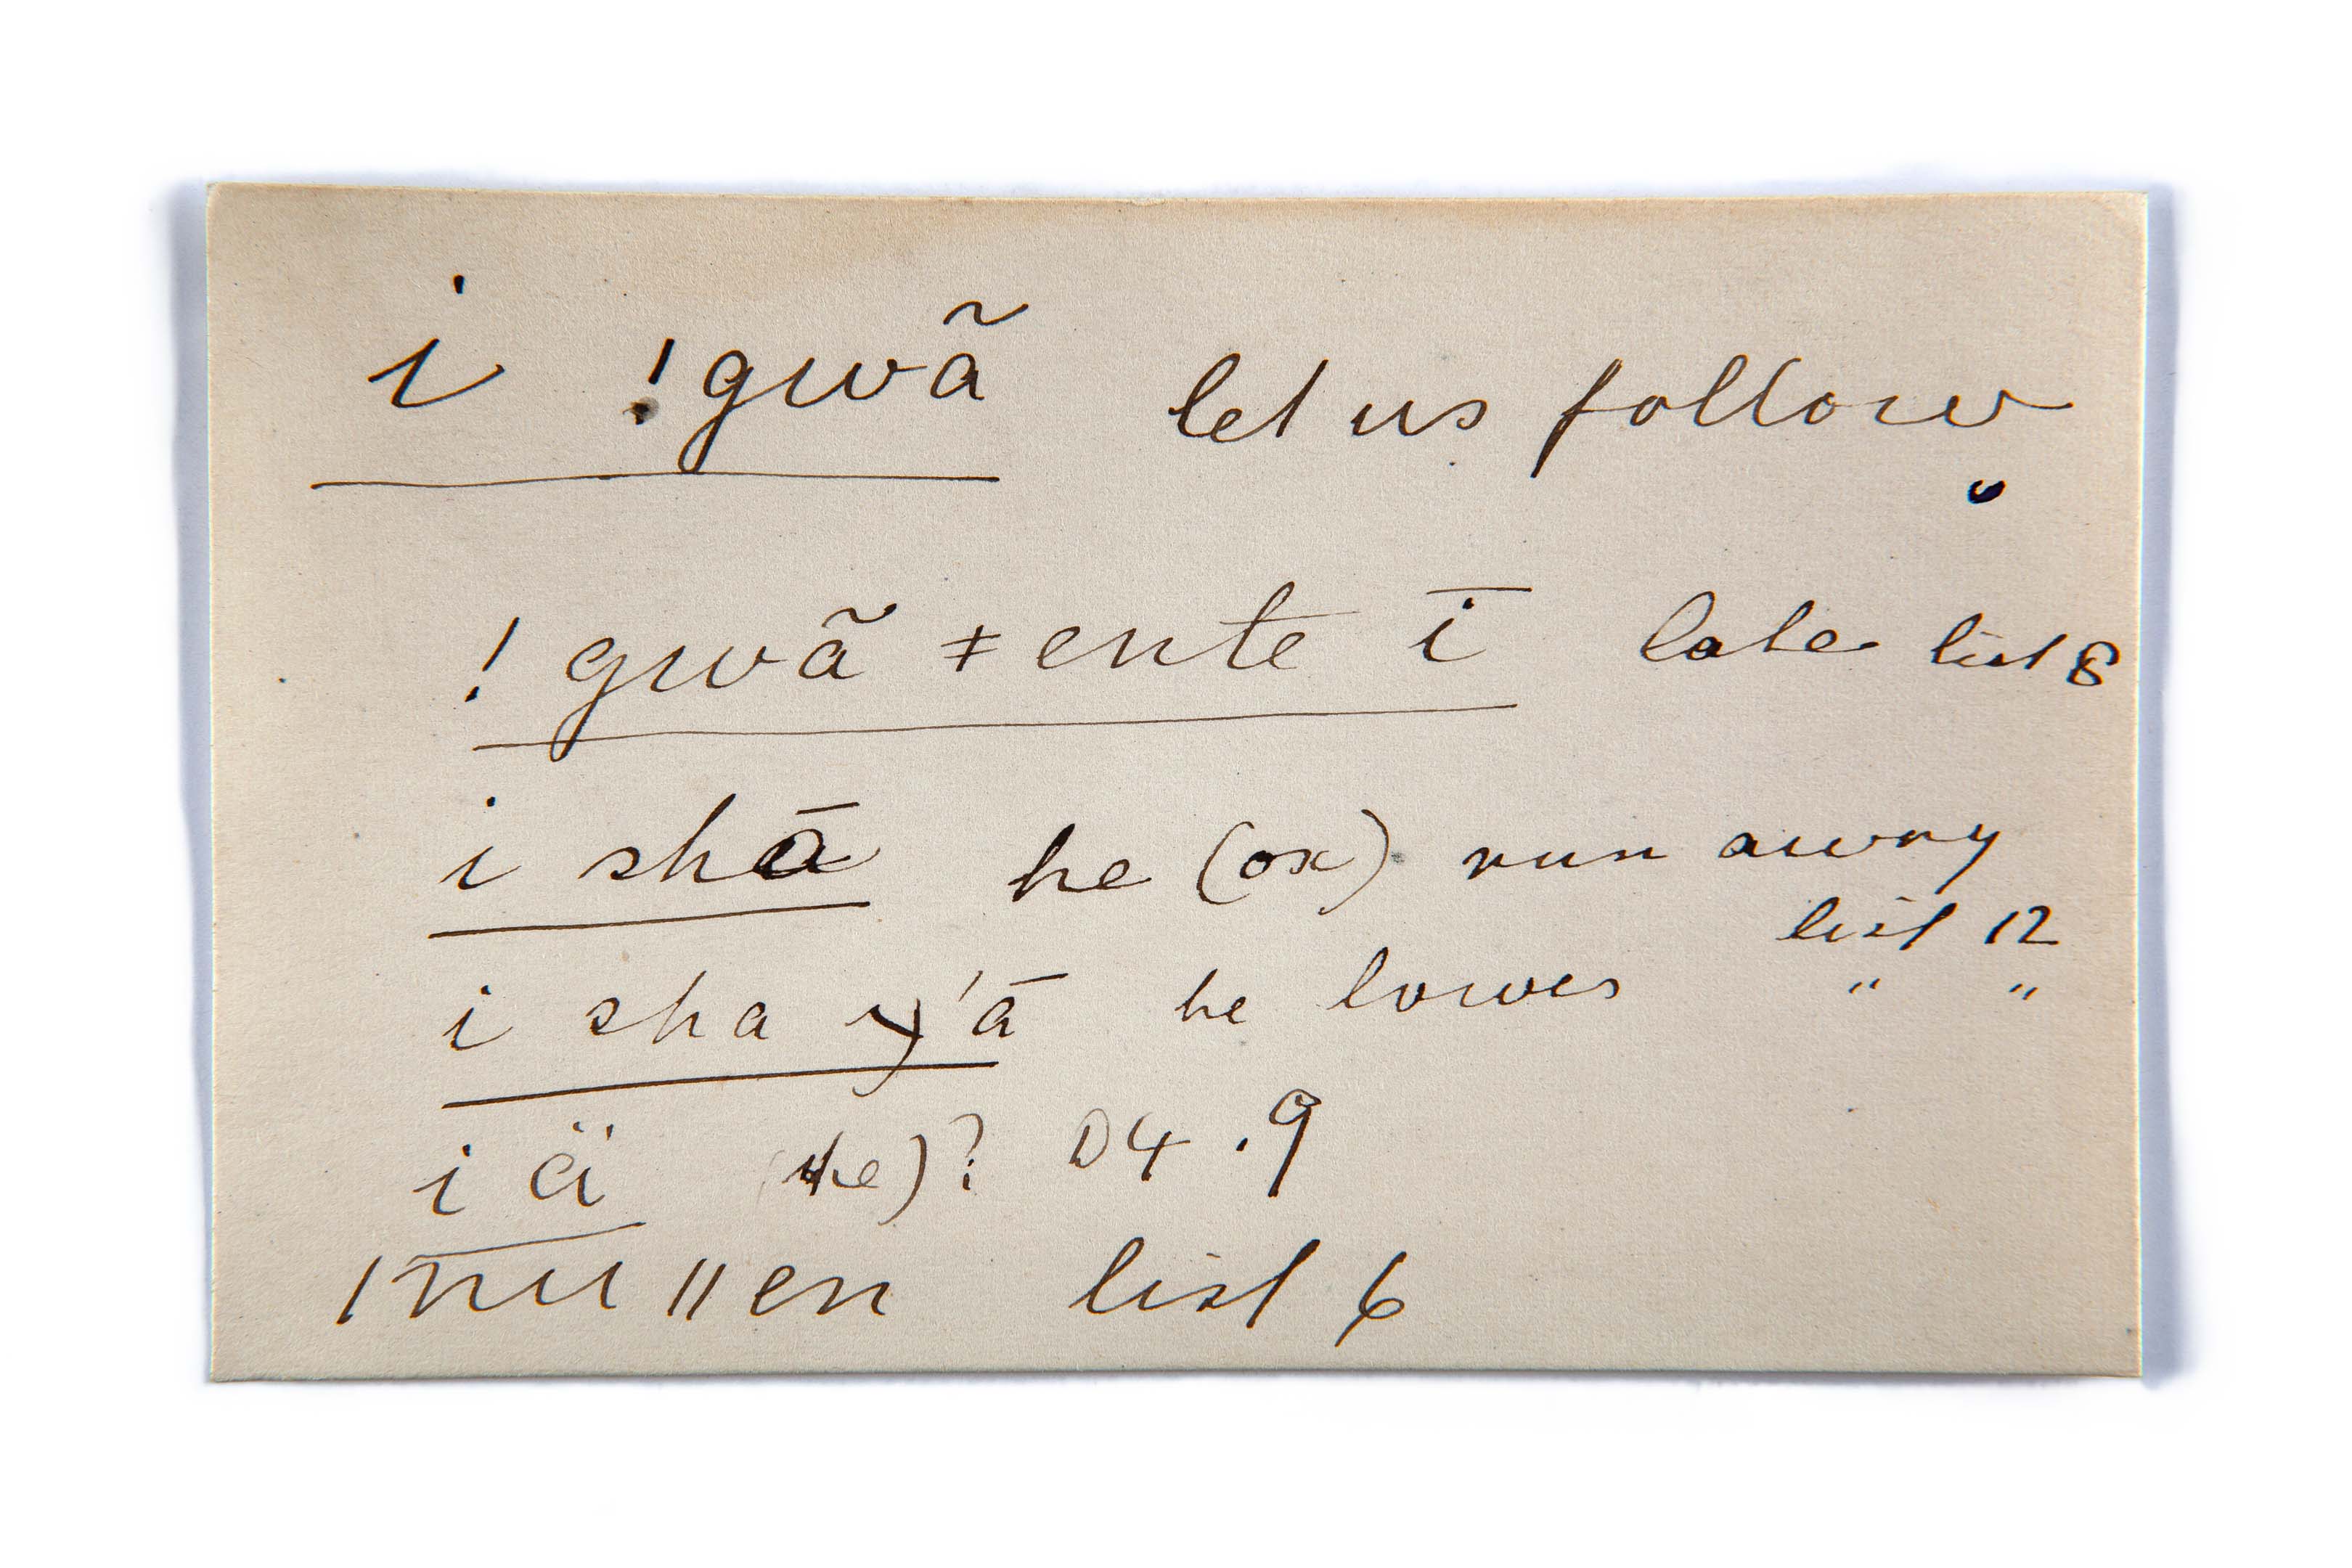 i !gwã let us follow
!gwã ǂente ī late list 8
i shā he (ox) run away
list 12
i sha y'ā he lowes " "
i ä (he)? D4.9
/nu //en list 6